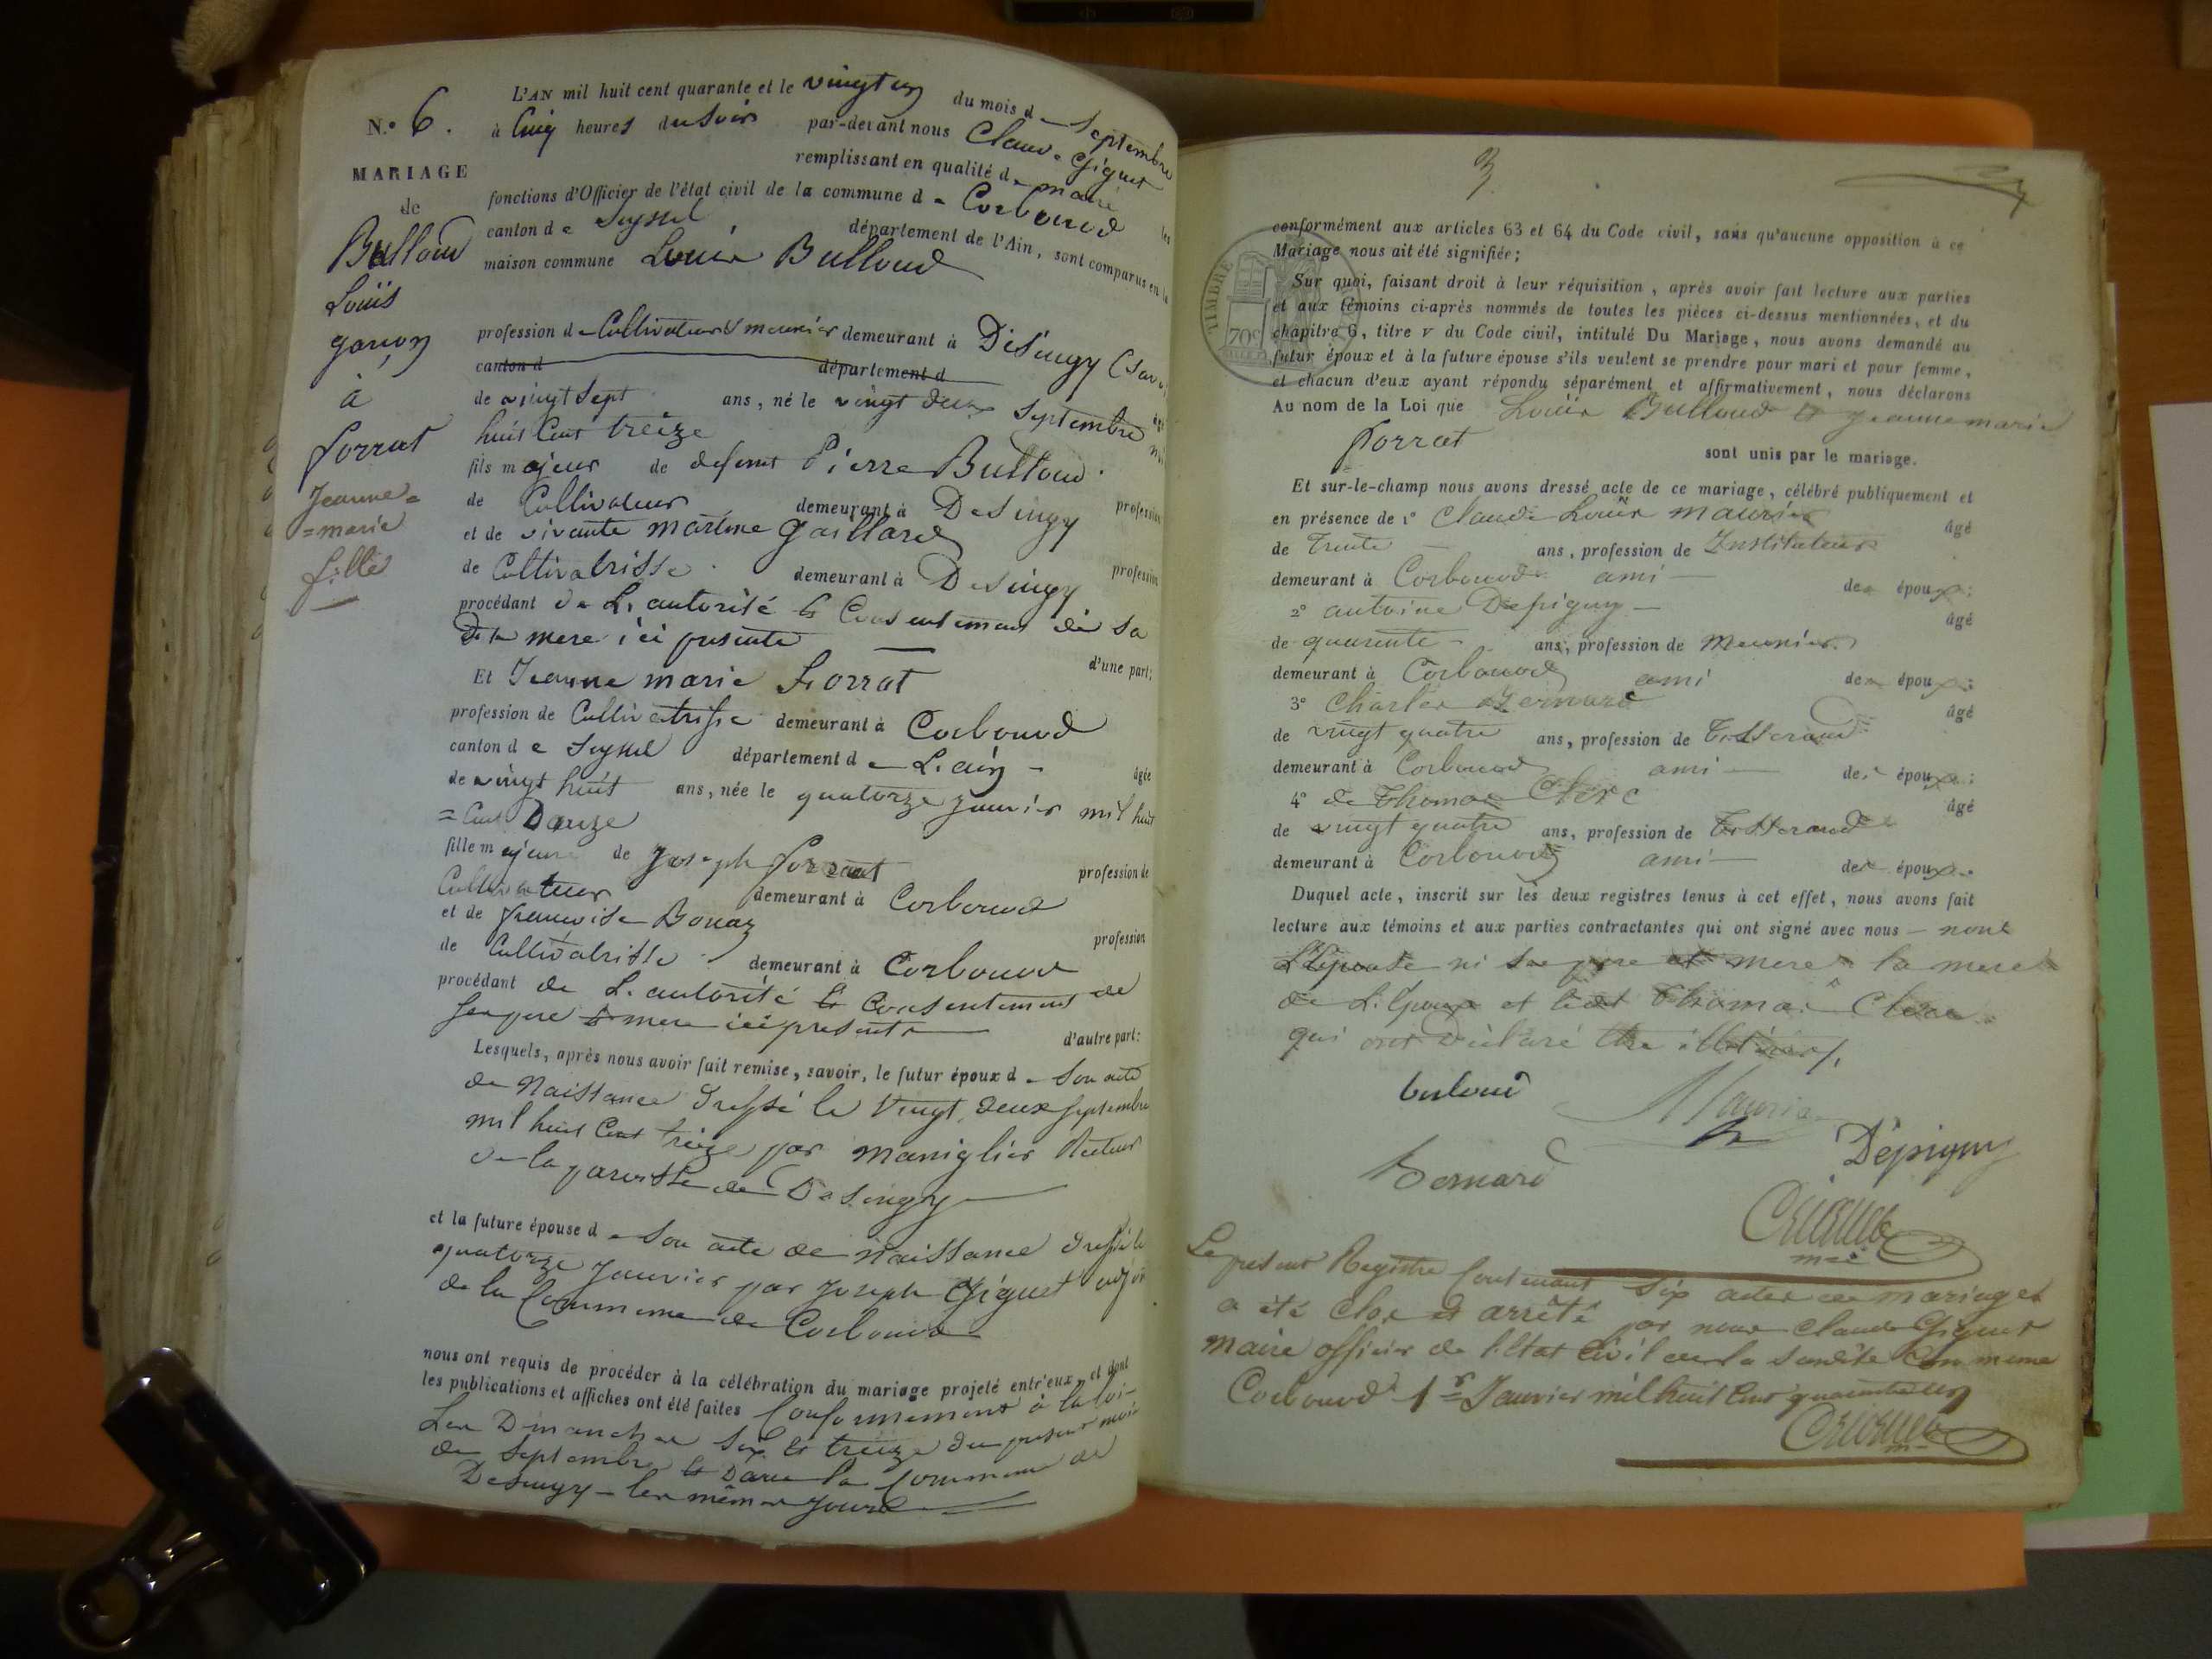 N.º 6.
MARIAGE
de
Bulloud
Louis
garçon
à
forrat
Jeanne=
=marie
fille
L'AN mil huit cent quarante et le vingt un du mois de Septembre
à Cinq heures du Soir par-devant nous Claude Giguet
remplissant en qualité de maire les
fonctions d'Officier de l'état civil de la commune de Corbonod
canton de Seyssel département de l'Ain, sont comparus en la
maison commune Louis Bulloud
profession de Cultivateur & meunier demeurant à Désingy (Sav
canton d département d âgé
de vingt Sept ans, né le vingt deux Septembre mil
huit Cent treize
fils majeur de defunt Pierre Bulloud profession
de Cultivateur demeurant à Desingy
et de vivante martine Gaillard profession
de Cultivatrisse demeurant à Desingy
procédant de L'autorité & Consentement de Sa
mere ici presente d'une part;
Et Jeanne marie Forrat
profession de Cultivatrisse demeurant à Corbonod
canton de Seyssel département de L'ain âgée
de vingt huit ans, née le quatorze janvier mil huit
= Cent Douze
fille majeure de Joseph forrat profession de
Cultivateur demeurant à Corbonod
et de françoise Bonaz profession
de Cultivatrisse demeurant à Corbonod
procédant de L'autorité & Consentement de
Ses pere & mere ici presents d'autre part:
Lesquels, après nous avoir fait remise, savoir, le futur époux de Son acte
de Naissance dressé le Vingt deux Septembre
mil huit Cent treize par Maniglier Recteur
de la paroisse de Desingy
et la future épouse de Son acte de Naissance dressé le
quatorze Janvier par Joseph Giguet adjoin
de la Commune de Corbonod
nous ont requis de procéder à la célébration du mariage projeté entr'eux, et dont
les publications et affiches ont été faites Conformément à la loi
Les Dimanches Six & treize du present mois
de Septembre & Dans la Commune de
Desingy les mêmes jours
3
conformément aux articles 63 et 64 du Code civil, sans qu'aucune opposition à ce
Mariage nous ait été signifiée;
TIMBRE
70c
Sur quoi, faisant droit à leur réquisition, après avoir fait lecture aux parties
et aux témoins ci-après nommés de toutes les pièces ci-dessus mentionnées, et du
chapitre 6, titre v du Code civil, intitulé Du Mariage, nous avons demandé au
futur époux et à la future épouse s'ils veulent se prendre pour mari et pour femme,
et chacun d'eux ayant répondu séparément et affirmativement, nous déclarons
Au nom de la Loi que Louis Bulloud & jeanne marie
forrat sont unis par le mariage.
Et sur-le-champ nous avons dressé acte de ce mariage, célébré publiquement et
en présence de 1º Claude Louis Maurier âgé
de Trente ans, profession de Instituteur
demeurant à Corbonod ami des époux;
2º antoine Depigny âgé
de quarente ans, profession de Meunier
demeurant à Corbonod ami des époux;
3º Charles Bernard âgé
de vingt quatre ans, profession de Tisserand
demeurant à Corbonod ami des époux;
4º de Thomas Clerc âgé
de vingt quatre ans, profession de Tisserand
demeurant à Corbonod ami des époux.
Duquel acte, inscrit sur les deux registres tenus à cet effet, nous avons fait
lecture aux témoins et aux parties contractantes qui ont signé avec nous non
L'Epouse ni Ses pere et mere la mere
de L'Epoux et Thomas Clerc
qui ont Déclaré être illetérés.
buloud Maurier
Bernard Dépigny
Giguet
m.
Le present Registre Contenant Six actes de mariages
a été Clos et arrêté par nous Claude Giguet
Maire officier de l'Etat Civil de la Susdite Commune
Corbonod 1r Janvier mil huit Cent quarante un
Giguet
m.